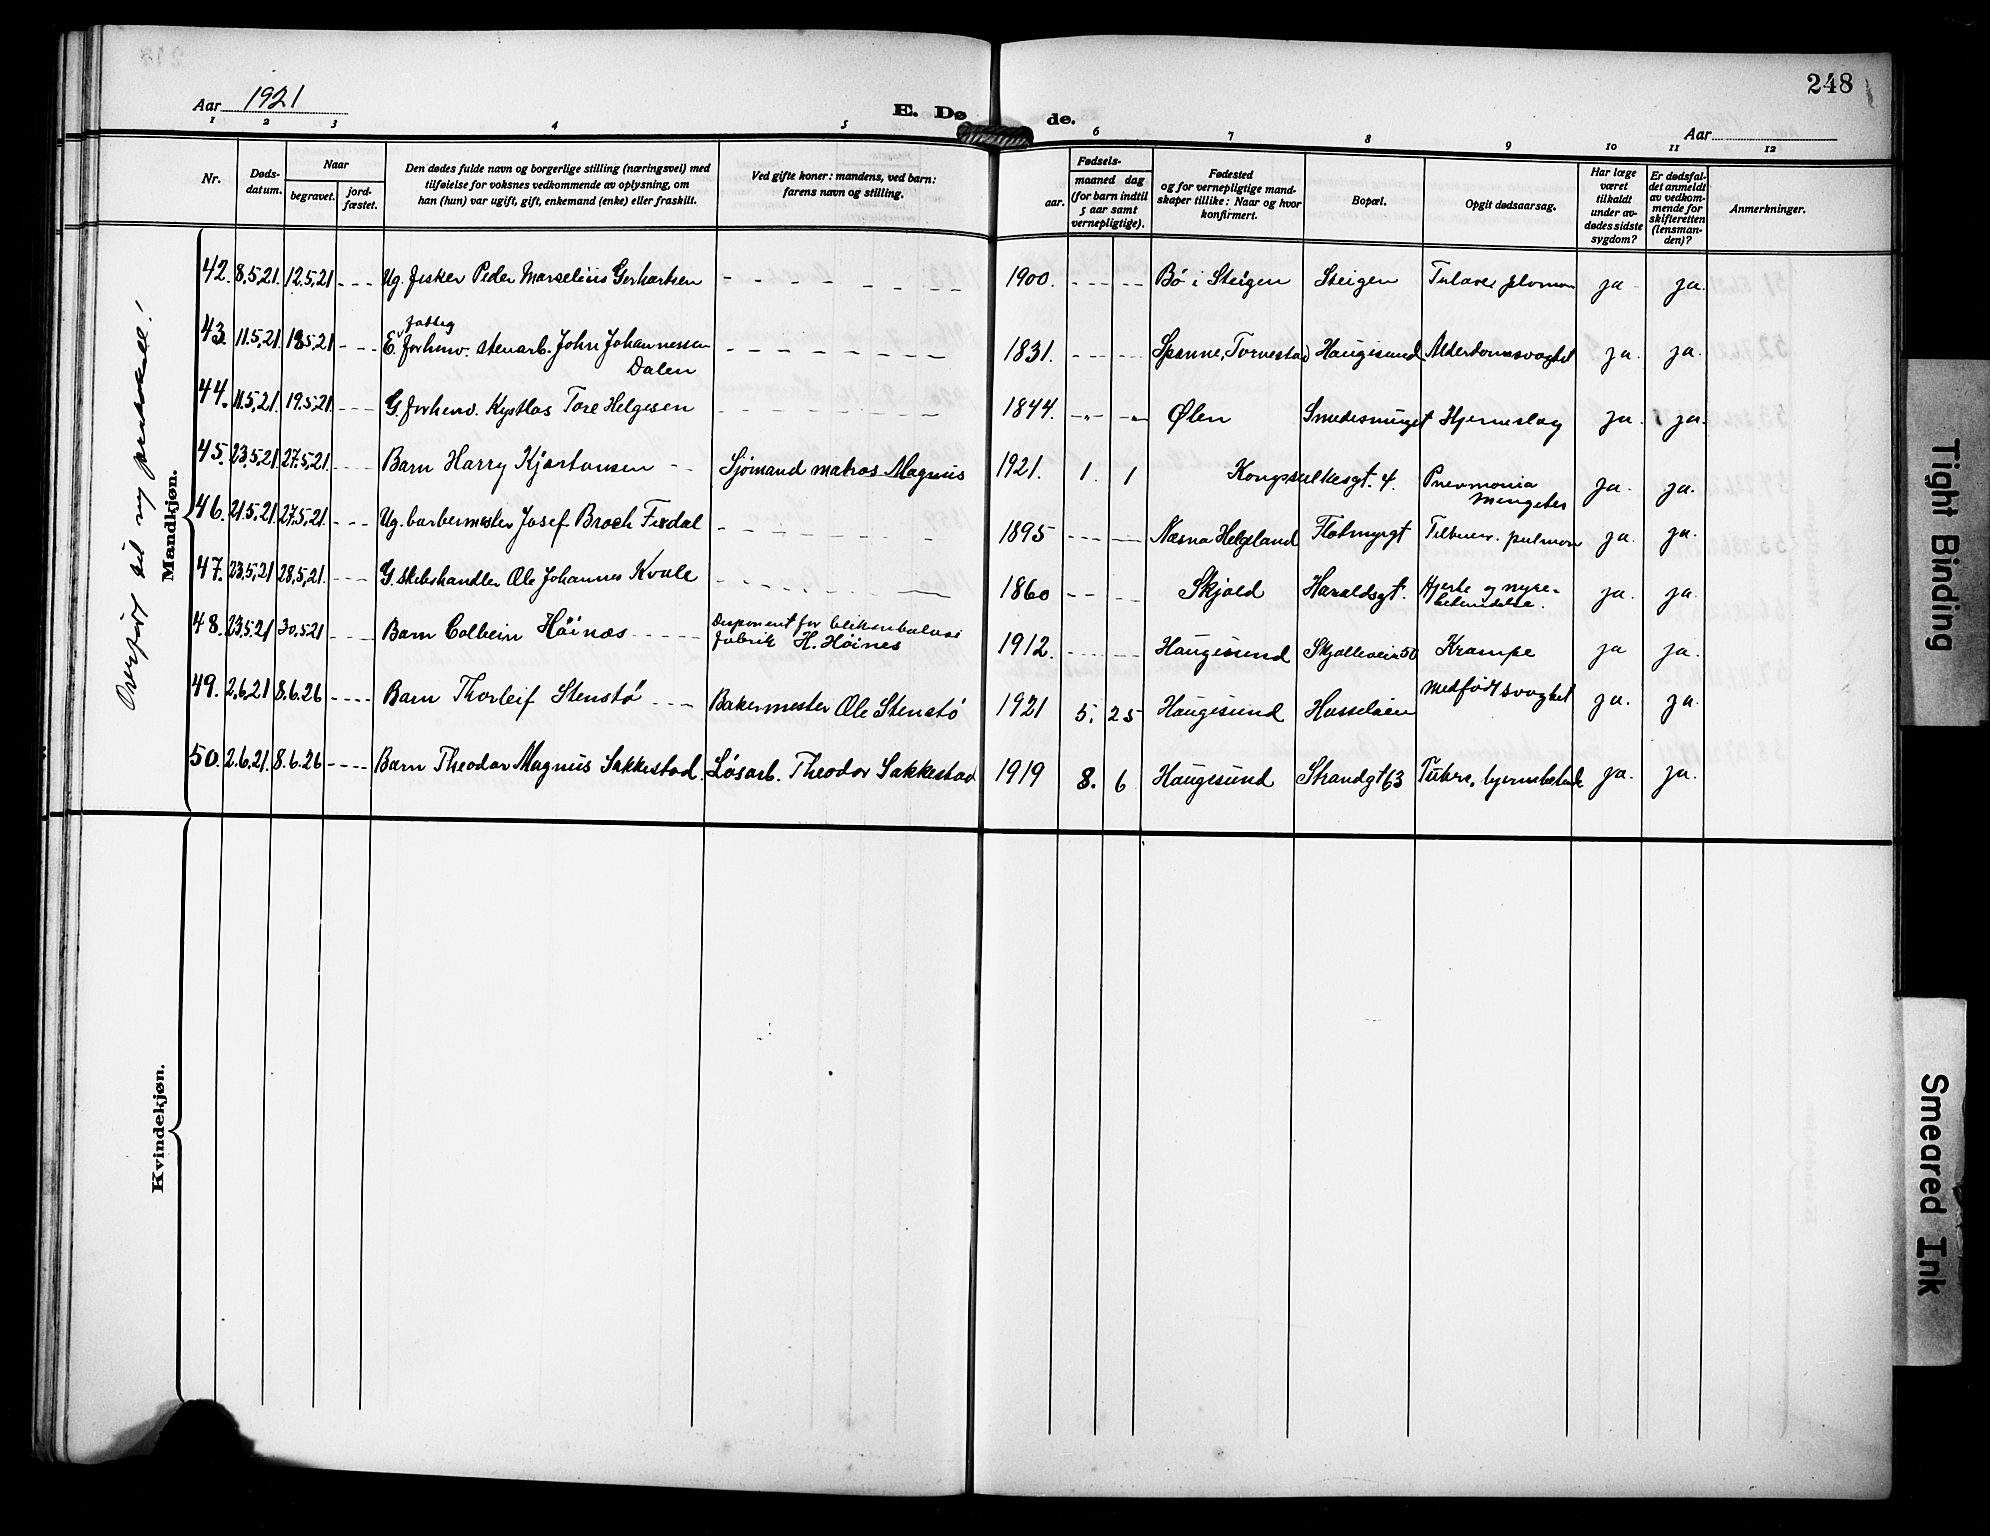 248
Aar 1921
E. Dø de.
Aar
1 2 3 4 5 6 7 8 9 10 11 12
Nr.
Døds-
datum.
Naar
begravet.
jord-
fæstet.
Den dødes fulde navn og borgerlige stilling (næringsvei) med
tilføielse for voksnes vedkommende av oplysning, om
han (hun) var ugift, gift, enkemand (enke) eller fraskilt.
Ved gifte koner: mandens, ved barn:
farens navn og stilling.
Fødsels-
aar.
maaned dag
(for barn indtil
5 aar samt
vernepligtige).
Fødested
og for vernepligtige mand-
skaper tillike: Naar og hvor
konfirmert.
Bopæl.
Opgit dødsaarsag.
Har læge
været
tilkaldt
under av-
dødes sidste
sygdom?
Er dødsfal-
det anmeldt
av vedkom-
mende for
skifteretten
(lensman-
den)?
Anmerkninger.
Overført til ny protokoll!
Mandkjøn.
42. 8.5.21. 12.5.21 - - - Ug. fisker Peder Marselius Gerhartsen - - - - - - - 1900. - - - - - Bø i Steigen Steigen ja ja.
fattig
43. 11.5.21 18.5.21 - - - E. forhenv. stenarb. John Johannessen - - - - - - - 1831. - - - - - Spanne, Torvestad Haugesund Alderdomssvaghet ja. ja.
Dalen
44. 11.5.21. 19.5.21. - - - G. forhenv. Tore Helgesen - - - - - - - 1844. Ølen Smedesmuget Hjerneslag ja. ja.
45. 23.5.21 27.5.21 - - - Barn Harry Kjartansen - - Sjømand matros Magnus 1921. 1. 1 gt. 4. Pnevmonia ja. ja.
46. 21.5.21. 27.5.21. - - - Ug. barbermester Josef Broch Fixdal - - - - - - - 1895 - - - - - Næsna Helgeland Flotmyrgt ja. ja.
47. 23.5.21 28.5.21. - - - G. Ole Johannes Kvale - - - - - - - 1860 - - - - Skjold Haraldsgt. Hjerte og nyre- ja. ja.
betendelse.
48. 23.5.21 30.5.21 - - - Barn Colbein Höinæs - - - - Disponent for
fabrik H. Höines 1912. - - - - - Haugesund 50 Krampe ja ja.
49. 2.6.21 8.6.26 - - - - Barn Thorleif Stenstö - - - Bakermester Ole Stenstö 1921 5. 25 Haugesund Hasseløen Medfødt svaghet ja. ja.
50. 2.6.21. 8.6.26 - - - - Barn Theodor Magnus Sakkestad. Løsarb. Theodor Sakkestad 1919 8. 6 Haugesund Strandgt 63 Tuberk. ja. ja.
Kvindekjøn.
Tight Binding
Smeared Ink